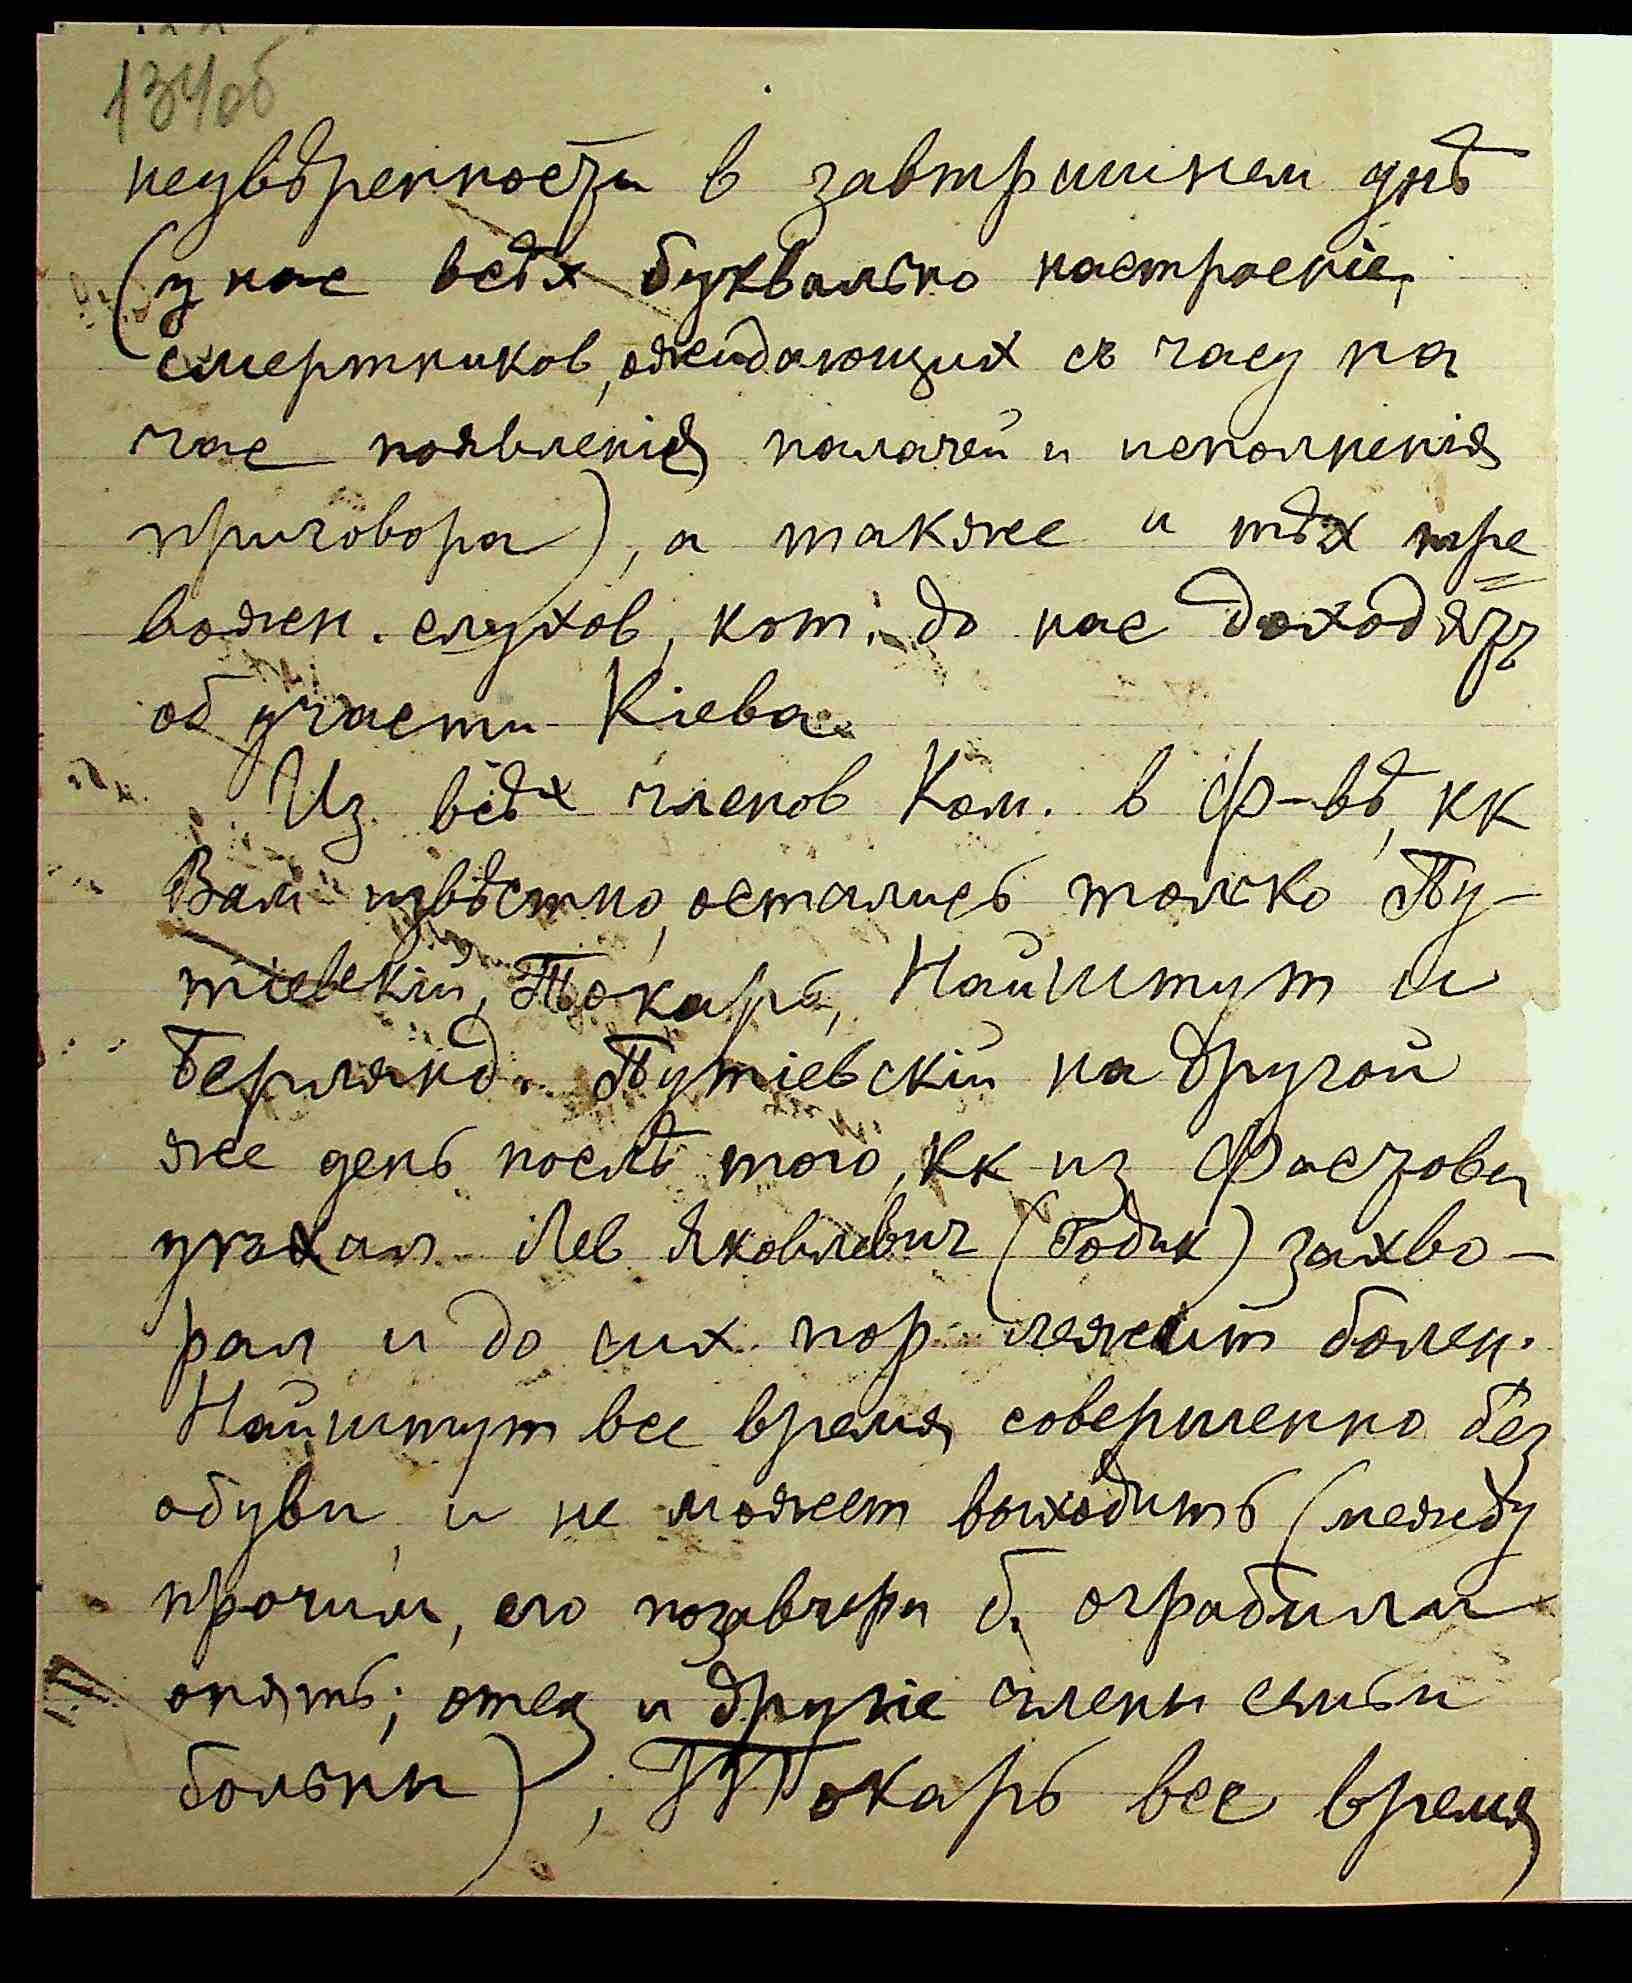 134об
неувѣренности в завтрашнем днѣ
(у нас всѣх буквально настроеніе
смертников, ожидающих съ часу на
час появленія палачей и исполненія
приговора), а также и тѣх тре
вожн. слухов, кот. до нас доходят
об участи Кіева.
Из всѣх членов Ком. в Ф-вѣ, кк
Вам извѣстно, остались только Пу-
тіевскій, Токарь, Найштут и
Берлянд. Путіевскій на другой
же день послѣ того, кк из Фастова
уѣхал Лев Яковлевич (Годик) захво-
рал и до сих пор лежит болен.
Найштут все время совершенно без
обуви и не может выходить (между
прочим, его позавчера б. ограбили
опять; отец и другіе члены семьи
больны), Токарь все время